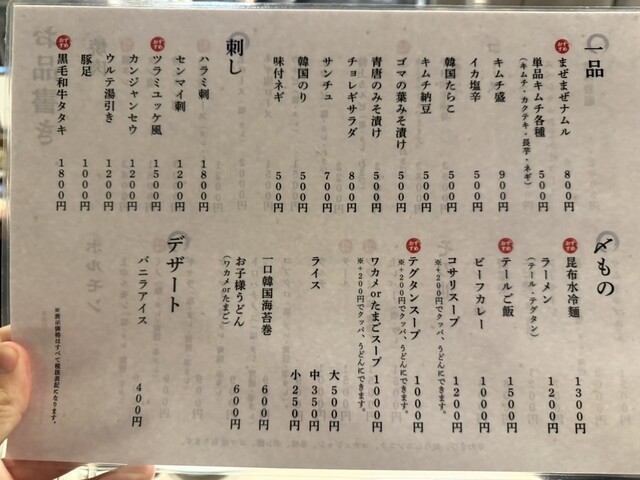 一品
おすすめ まぜまぜナムル 800円
単品キムチ各種 500円
(キムチ・カクテキ・長芋・ネギ)
キムチ盛 900円
イカ塩辛 500円
韓国たらこ 500円
キムチ納豆 500円
ゴマの葉みそ漬け 500円
青唐のみそ漬け 500円
チョレギサラダ 800円
サンチュ 700円
韓国のり 500円
味付ネギ 500円
刺し
ハラミ刺 1800円
センマイ刺 1200円
おすすめ ツラミユッケ風 1500円
カンジャンセウ 1200円
ウルテ湯引き 1200円
豚足 1000円
おすすめ 黒毛和牛タタキ 1800円
〆もの
おすすめ 昆布水冷麺 1300円
ラーメン 1200円
(テール・テグタン)
おすすめ テールご飯 1500円
ビーフカレー 1000円
コサリスープ 1200円
※+200円でクッパ、うどんにできます。
おすすめ テグタンスープ 1000円
※+200円でクッパ、うどんにできます。
ワカメorたまごスープ 1000円
※+200円でクッパ、うどんにできます。
ライス 大500円
中350円
小250円
一口韓国海苔巻 600円
お子様うどん 600円
(ワカメorたまご)
デザート
バニラアイス 400円
※表示価格はすべて税抜表記になります。
お品書き
ホルモ